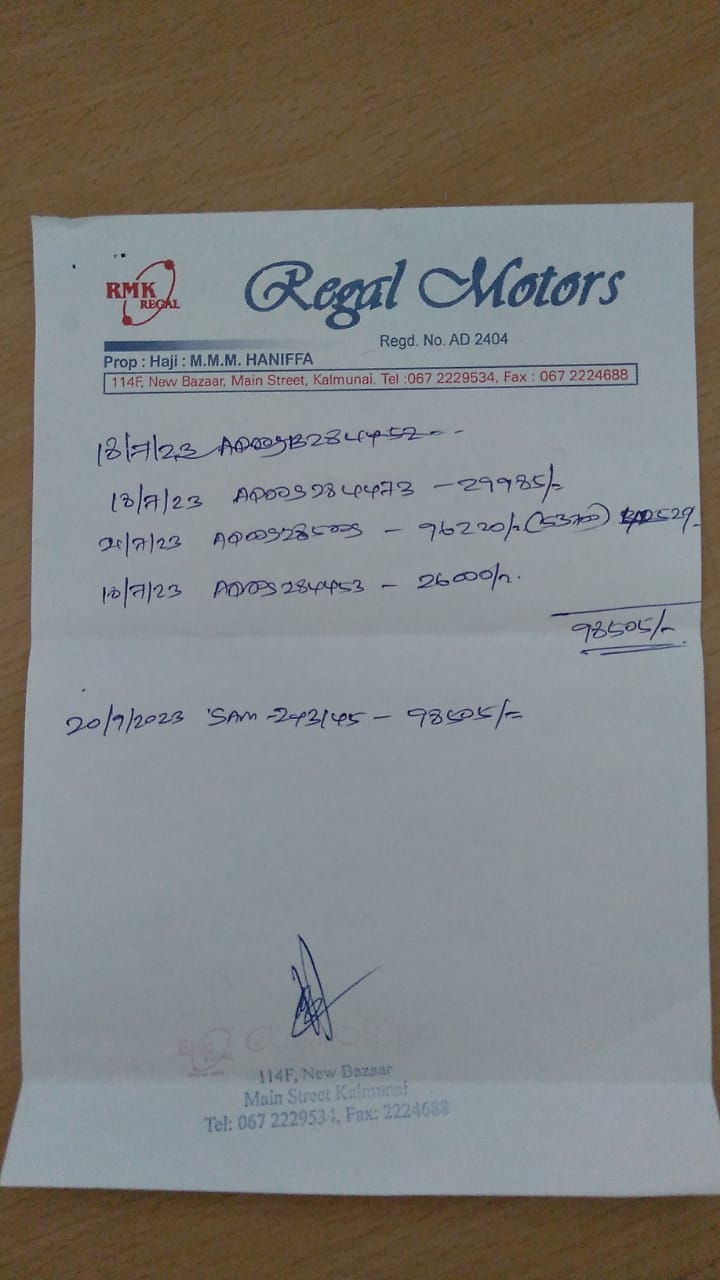 RMK
REGAL
Regal Motors
Regd. No. AD 2404
Prop : Haji : M.M.M. HANIFFA
114F, New Bazaar, Main Street, Kalmunai. Tel :067 2229534, Fax : 067 2224688
18/7/23
18/7/23 AD00S284473 - 29985/=
21/7/23 - 96220/= (53700)
18/7/23 AD00S284453 - 26000/=.
98505/=
20/9/2023 SAM-243145 - 98505/=
Regal Motors
114F, New Bazaar
Main Street Kalmunai
Tel: 067 2229534, Fax: 2224688